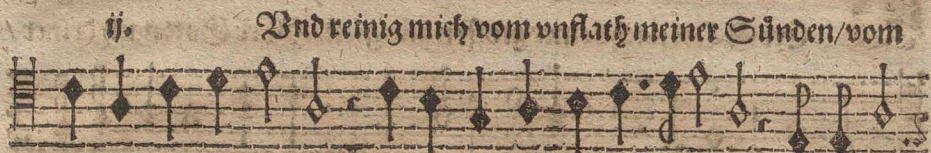 ij. Vnd reinig mich vom vnflath meiner Sünden/vom